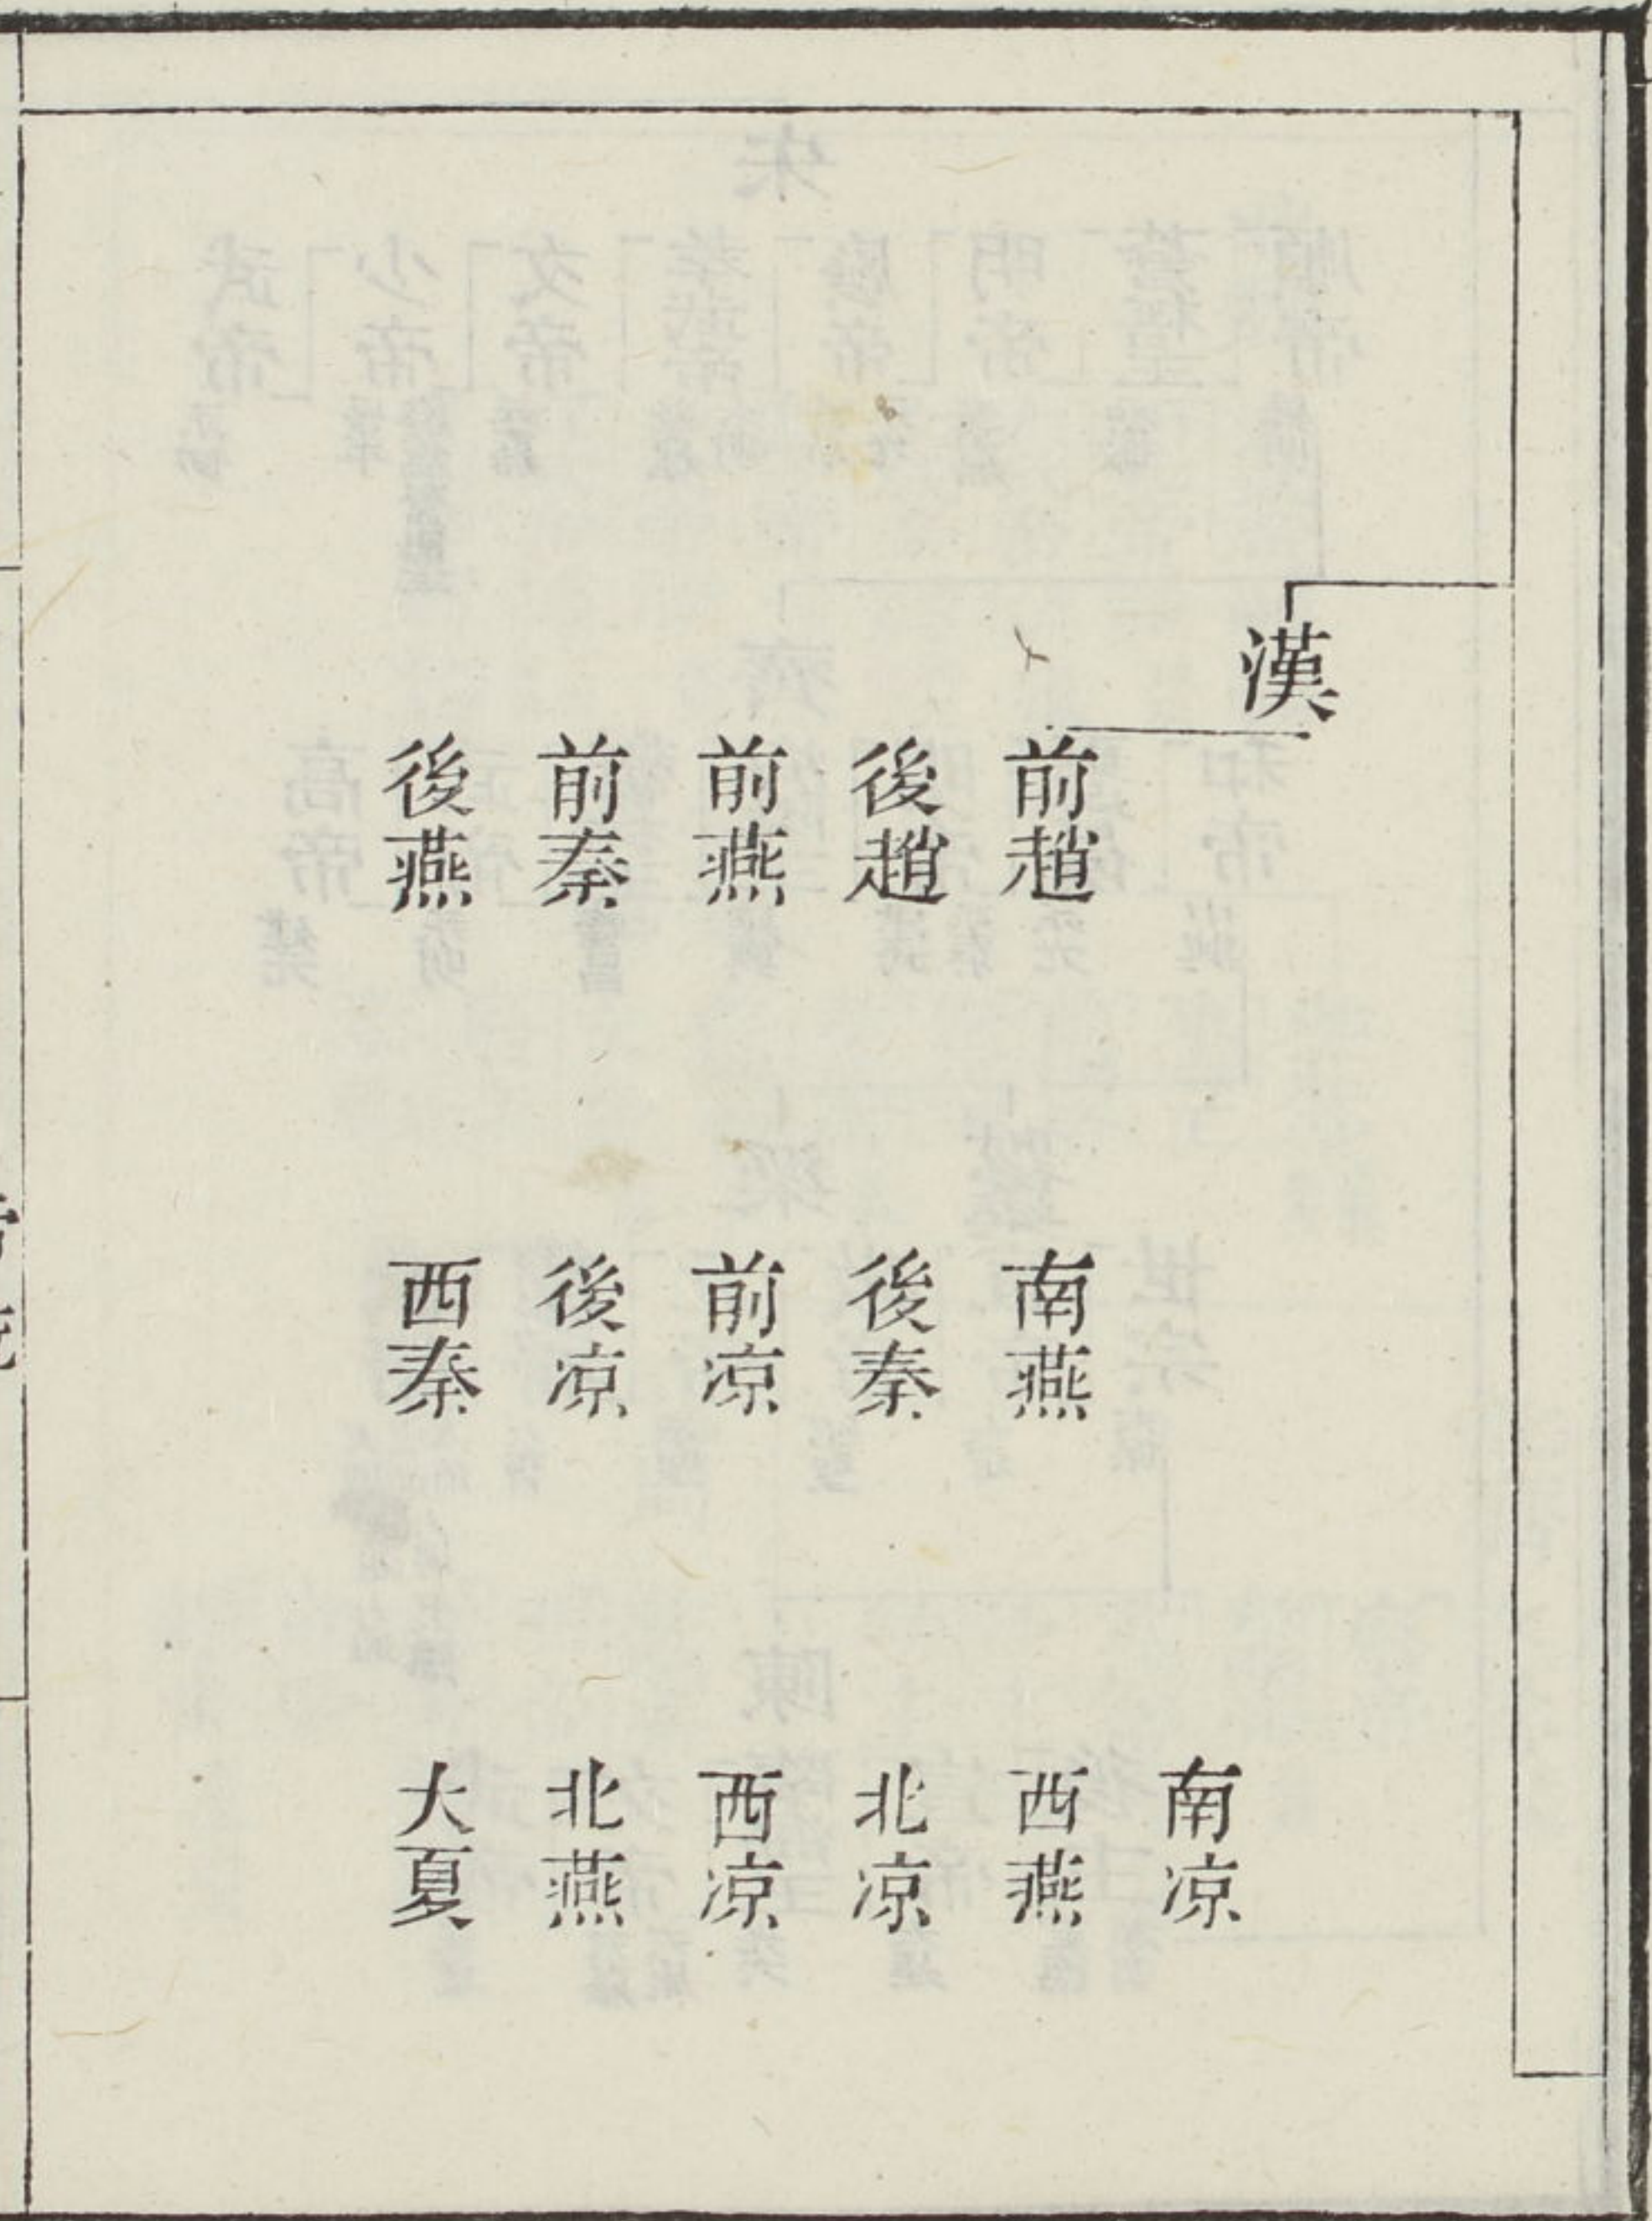 漢
前趙
後趙
前燕
前秦
後燕
南燕
後秦
前凉
後凉
西秦
南凉
西燕
北凉
西凉
北燕
大夏